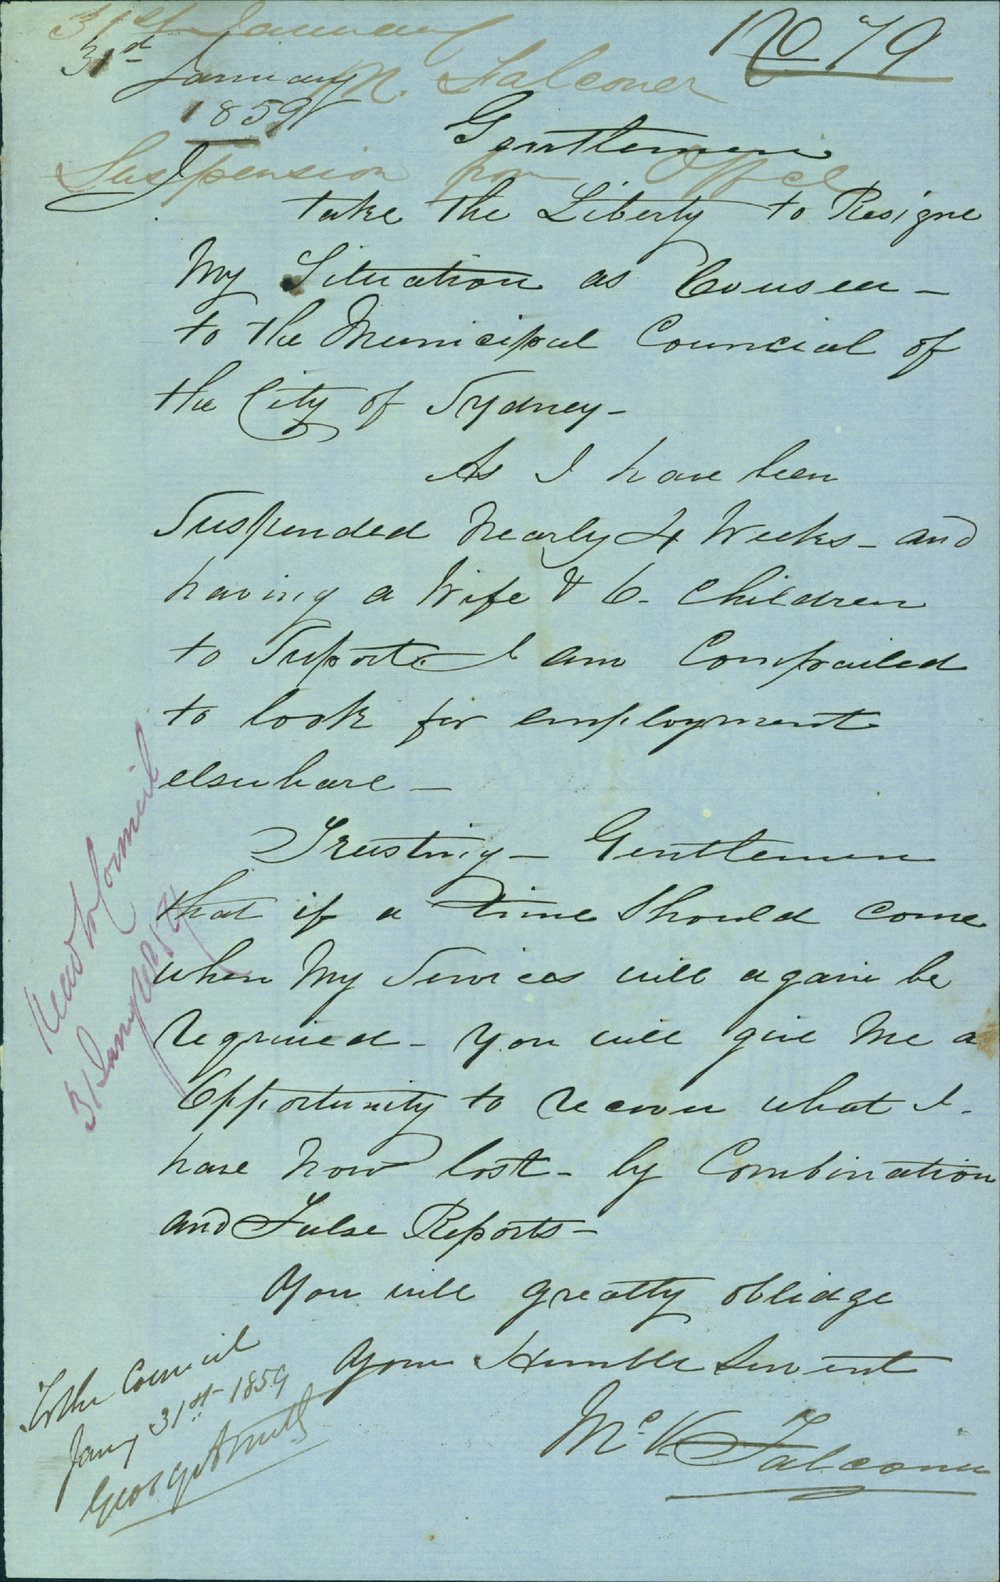 No 79
31st January
M. Falconer
Suspension from Office
31st
January
1859
Gentlemen
I
take the Liberty to Resigne
My Situation as
to the Municipal Councial of
the City of Sydney -
As I have been
Suspended Nearly 4 Weeks - and
having a Wife & 6 - Children
to Suport I am Compailed
to look for employment
elsewhare -
Trusting - Gentlemen
that if a time Should come
when My Services will again be
Requried - you will give Me a
Opportunity to Recover what I -
have Now lost - by Combination
and False Reports -
You will greatly oblidge
Your Humble Servent
Falconer
Read to Council
31 Jany
To the Council
Jany 31st 1859
George Smith